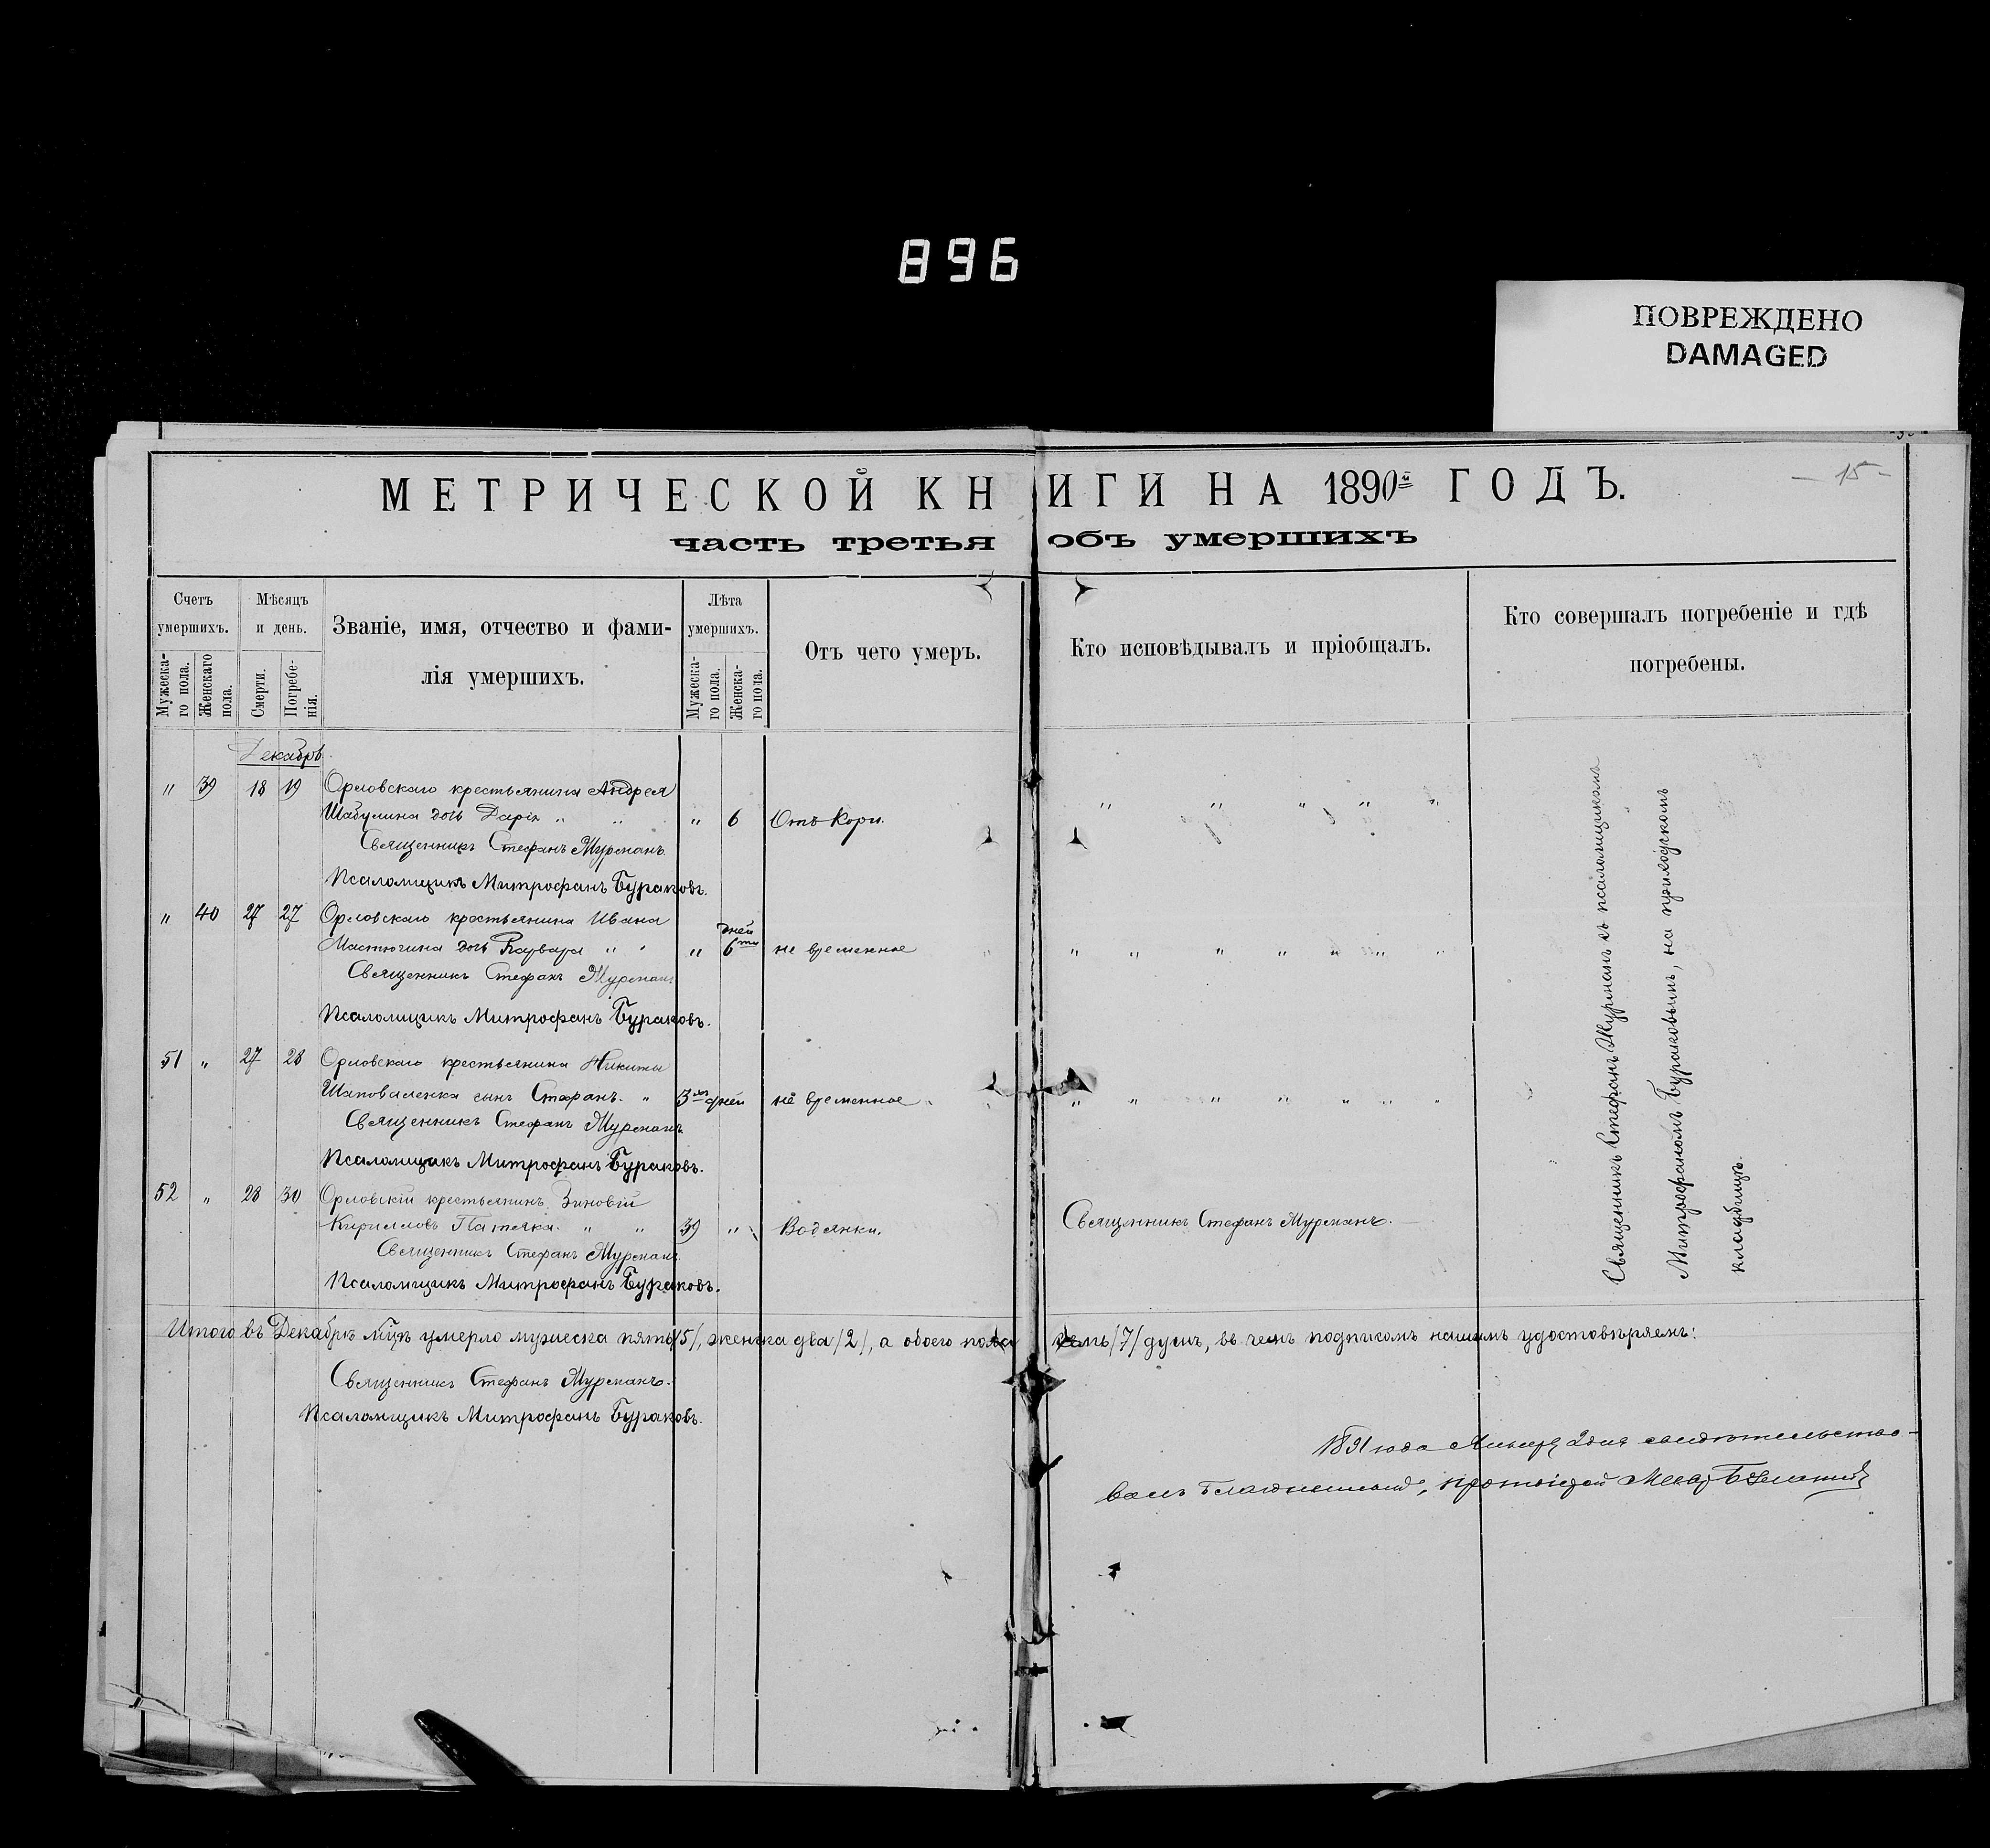 896
ПОВРЕЖДЕНО
DAMAGED
— 15 —
МЕТРИЧЕСКОЙ КНИГИ НА 1890й ГОДЪ.
часть третья объ умершихъ
Счетъ умершихъ.
Мужеска-го пола.
Женскаго пола.
Мѣсяцъ и день.
Смерти.
Погребе-нія.
Званіе, имя, отчество и фами-
лія умершихъ.
Лѣта умершихъ.
Мужеска-го пола.
Женска-го пола.
Отъ чего умеръ.
Кто исповѣдывалъ и пріобщалъ.
Кто совершалъ погребеніе и гдѣ
погребены.
Декабрь
" 39 18 19 Орловскаго крестьянина Андрея
Шабулина дочь Дарія " " " 6 Отъ Кори. " " " " "
Священникъ Стефанъ Мурсканъ.
Псаломщикъ Митрофанъ Бураковъ.
" 40 27 27 Орловскаго крестьянина Ивана
дней
Мастюгина дочь Варвара " " " 6ти не временное " " " " " " "
Священникъ Стефанъ
Псаломщикъ Митрофанъ Бураковъ.
51 " 27 28 Орловскаго крестьянина Никиты
Шаповаленка сынъ Стефанъ. " 3хъ дней не временное " " " " " " "
Священникъ Стефанъ
Псаломщикъ Митрофанъ Бураковъ.
52 " 28 30 Орловскій крестьянинъ Зиновій
Кирилловъ " " 39 " Водянки. Священникъ Стефанъ
Священникъ Стефанъ
Псаломщикъ Митрофанъ Бураковъ.
Священникъ Стефанъ съ псаломщикомъ
Митрофаномъ Бураковымъ, на приходскомъ
кладбищѣ.
Итого въ Декабрѣ мцѣ умерло мужеска пять /5/, женска два /2/, а обоего пола семь /7/ душъ, въ чемъ подписомъ нашимъ удостовѣряемъ:
Священникъ Стефанъ
Псаломщикъ Митрофанъ Бураковъ.
1891 года Января 2 дня свидѣтельство-
валъ Благочинный, протоіерей